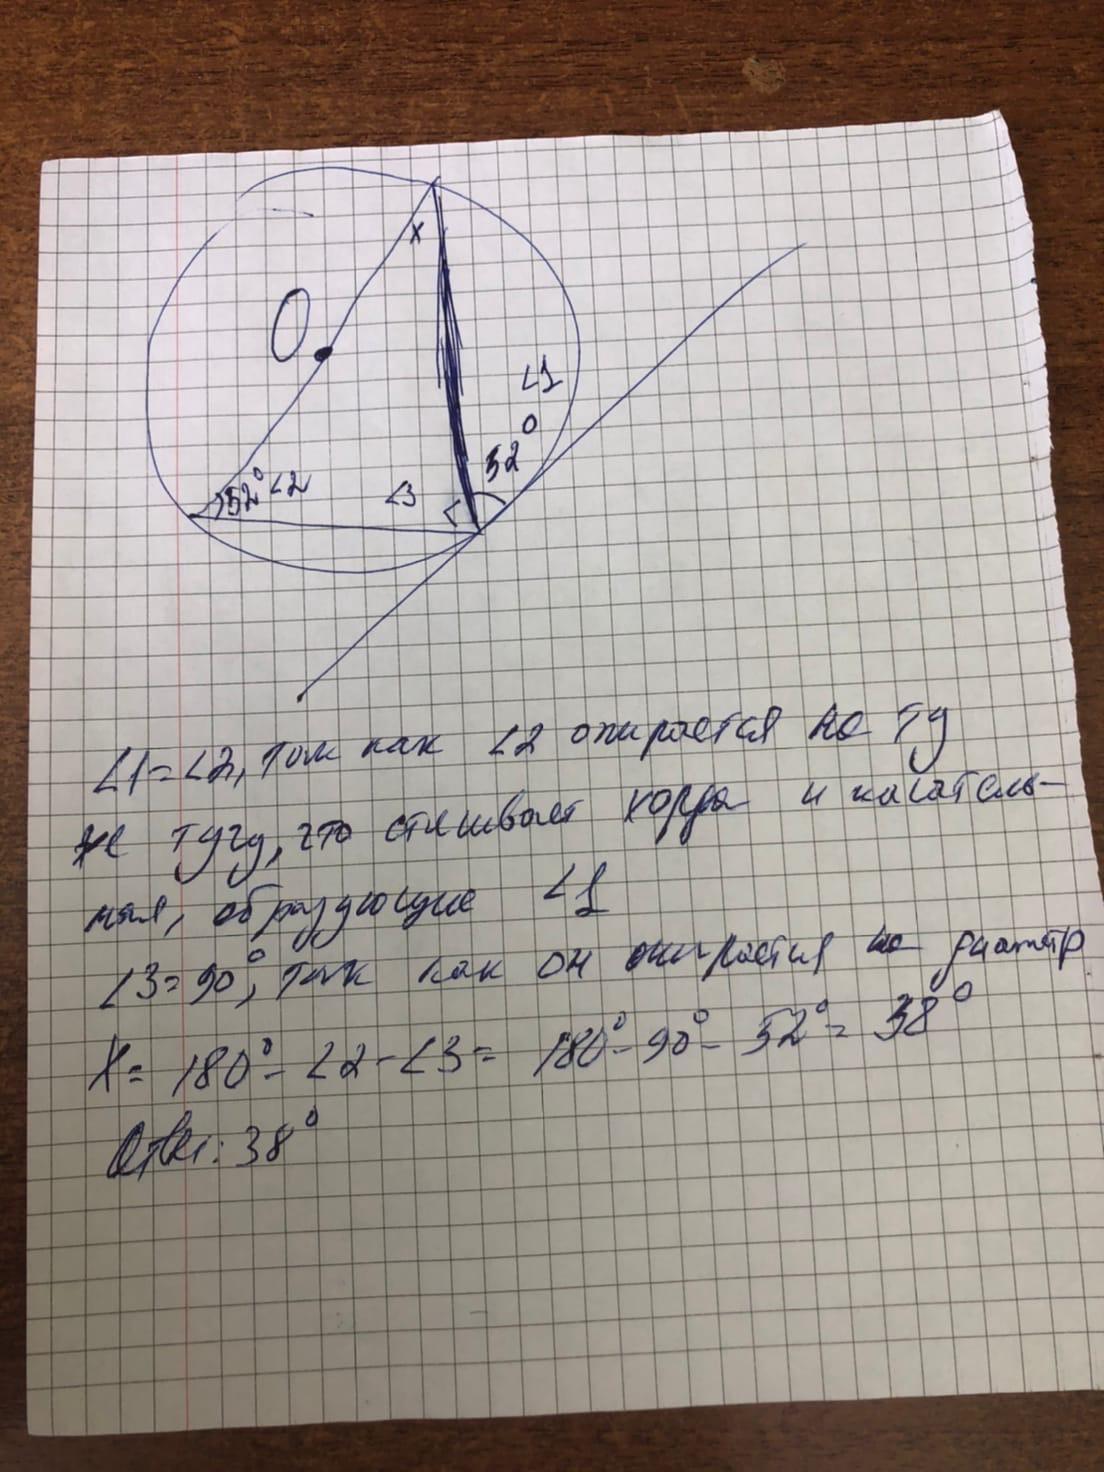 O
x
∠1
52°
52° ∠2
∠3
∠1=∠2, так как ∠2 опирается на ту
же дугу, что стягивает хорда и касатель-
ная, образующие ∠1
∠3=90°, так как он опирается на диаметр
X= 180°-∠2-∠3= 180°-90°-52°= 38°
Ответ: 38°